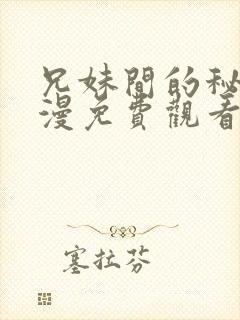 兄妹間的秘
漫免費觀看
塞拉芬